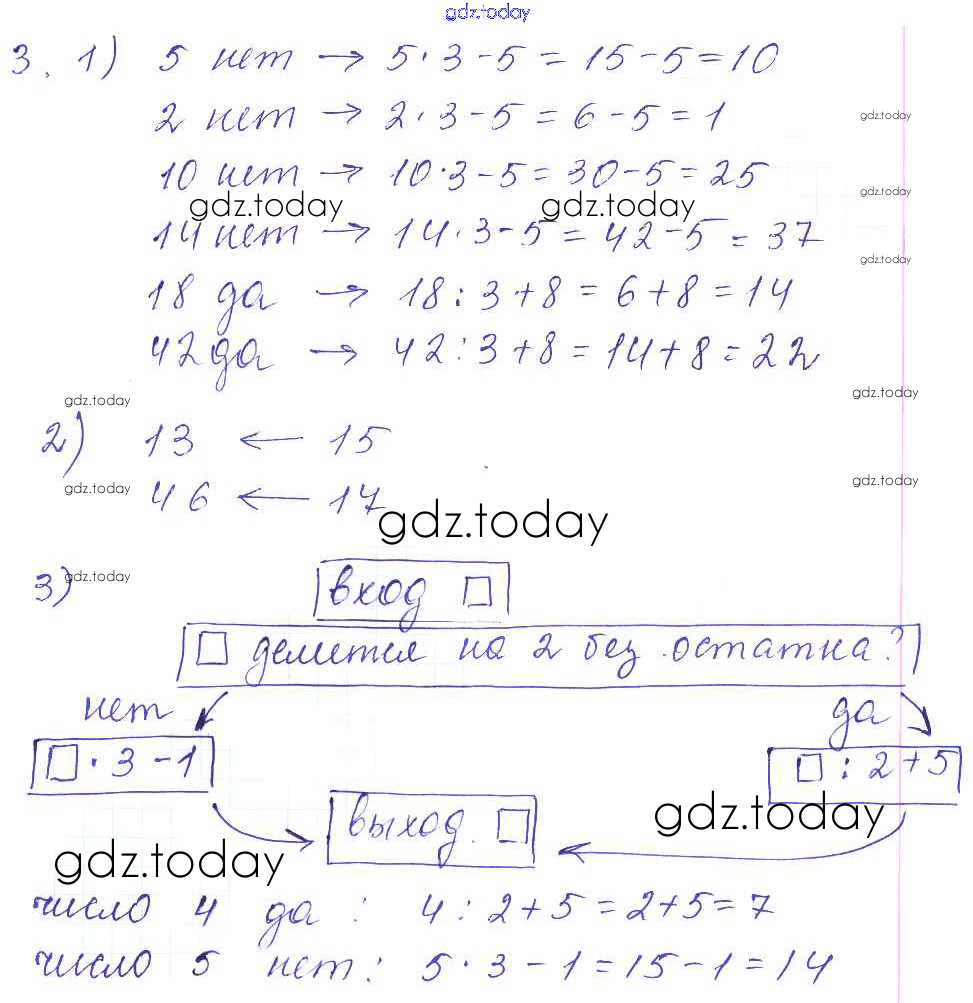 gdz.today
3. 1) 5 нет → 5·3-5=15-5=10
2 нет → 2·3-5=6-5=1
gdz.today
10 нет → 10·3-5=30-5=25
gdz.today
gdz.today gdz.today
14 нет → 14·3-5=42-5=37
gdz.today
18 да → 18:3+8=6+8=14
42 да → 42:3+8=14+8=22
gdz.today gdz.today
2) 13 ← 15
gdz.today gdz.today
46 ← 17
gdz.today
3) gdz.today
вход □
□ делится на 2 без остатка?
нет да
□·3-1 □:2+5
выход □
gdz.today
gdz.today
число 4 да: 4:2+5=2+5=7
число 5 нет: 5·3-1=15-1=14